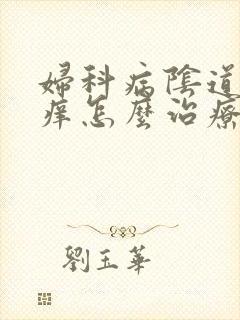 婦科病陰道
癢怎麼治療
劉玉華